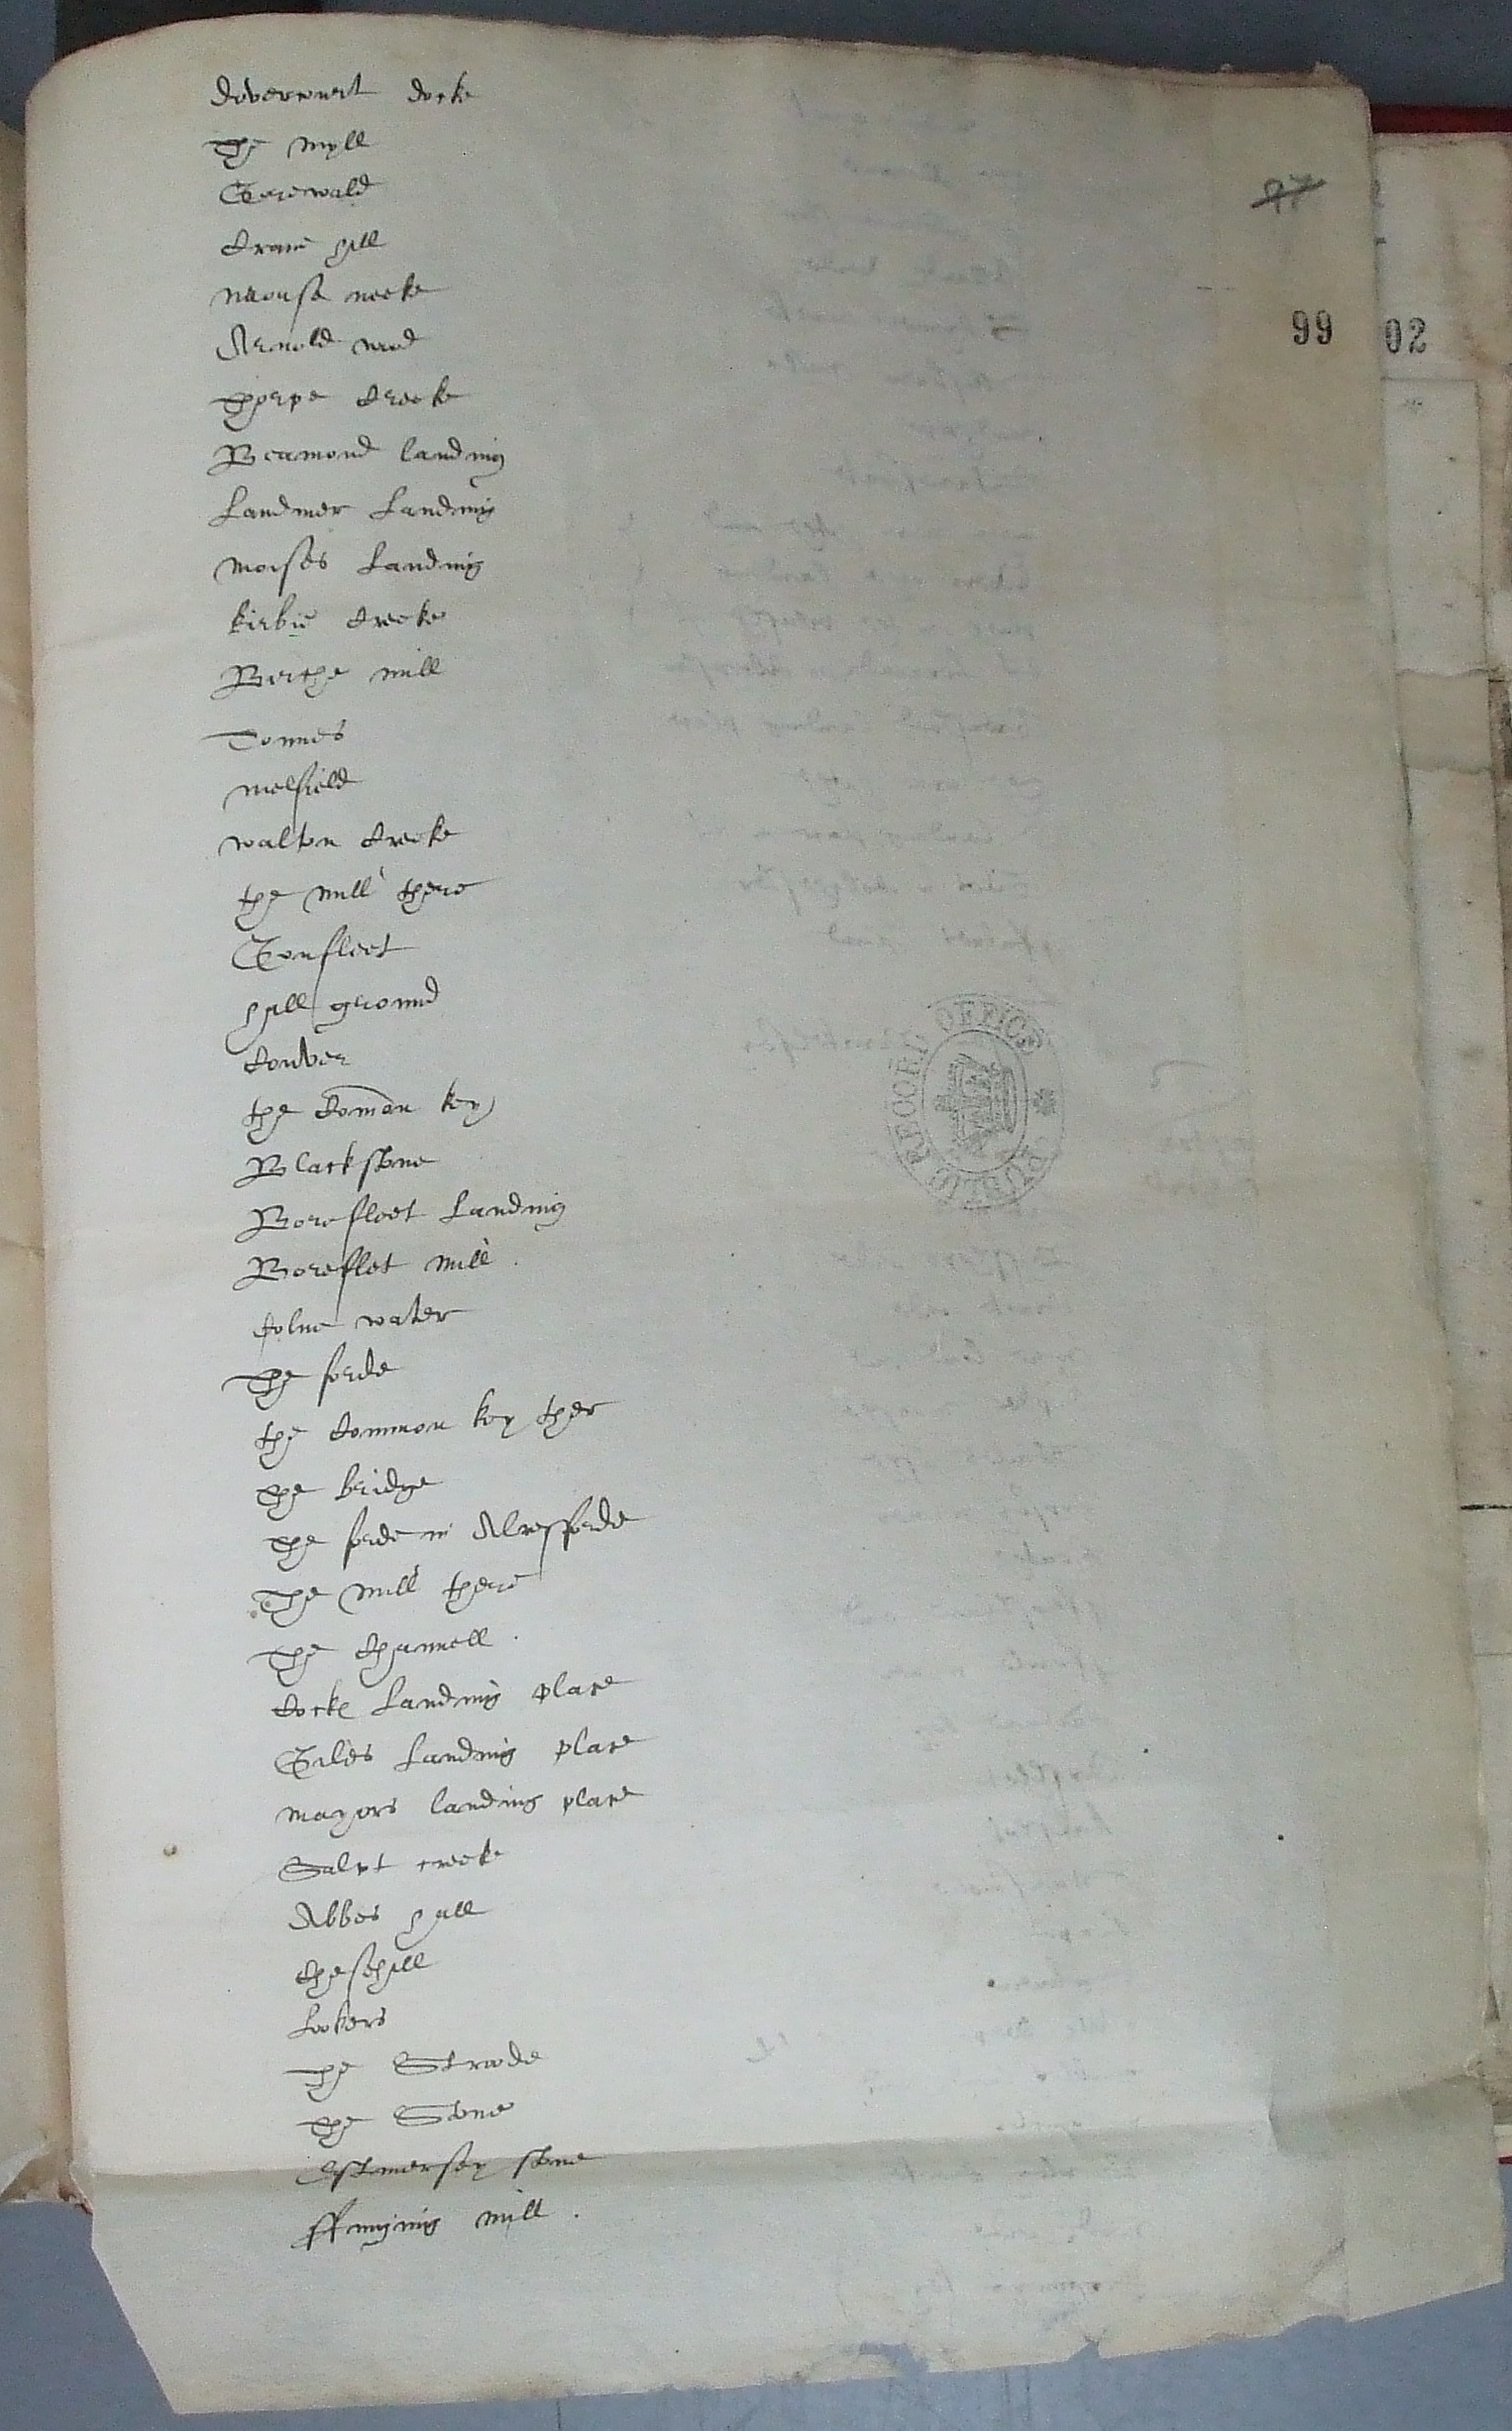 dovercourt docke
The myll
Gorewald
Crane hill
mouse necke
Arnold wood
Thorpe Creeke
Beamond landing
Landmer Landing
Moises Landing
kirbie Creeke
Birche mill
Tonnes
melfield
walton Creeke
the mill there
Gonfleet
hill ground
Conver
the Comon key
Blackstone
Borefleet Landing
Boreflet mill
Colne water
The forde
the Common key ther
The bridge
The forde in Alresforde
The mill there
The Channell
Cocke Landing place
Giles Landing place
mayors landing place
Salpt creeke
Abbes hall
Chesehill
Lookers
The Stroode
The Stone
Estmersey stone
ffinging mill
97
99
02
PUBLIC RECORD OFFICE